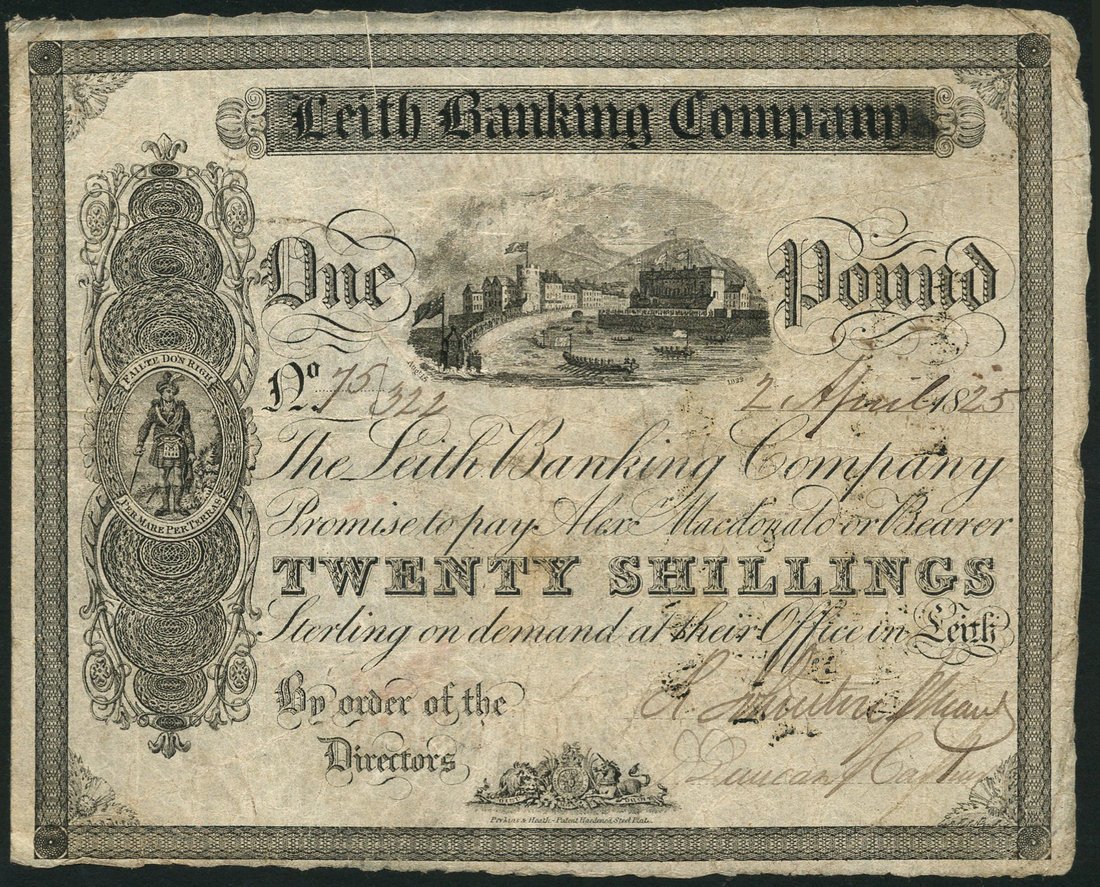 Leith Banking Company
One Pound
No 75/322 2 April 1825
AUGUST 1822
FAILTE DO'N RIGH
PER MARE PER TERRAS
The Leith Banking Company
Promise to pay Alexr Macdonald or Bearer
TWENTY SHILLINGS
Sterling on demand at their Office in Leith
By order of the
Directors
Duncan
Perkins & Heath - Patent Hardened Steel Plate.